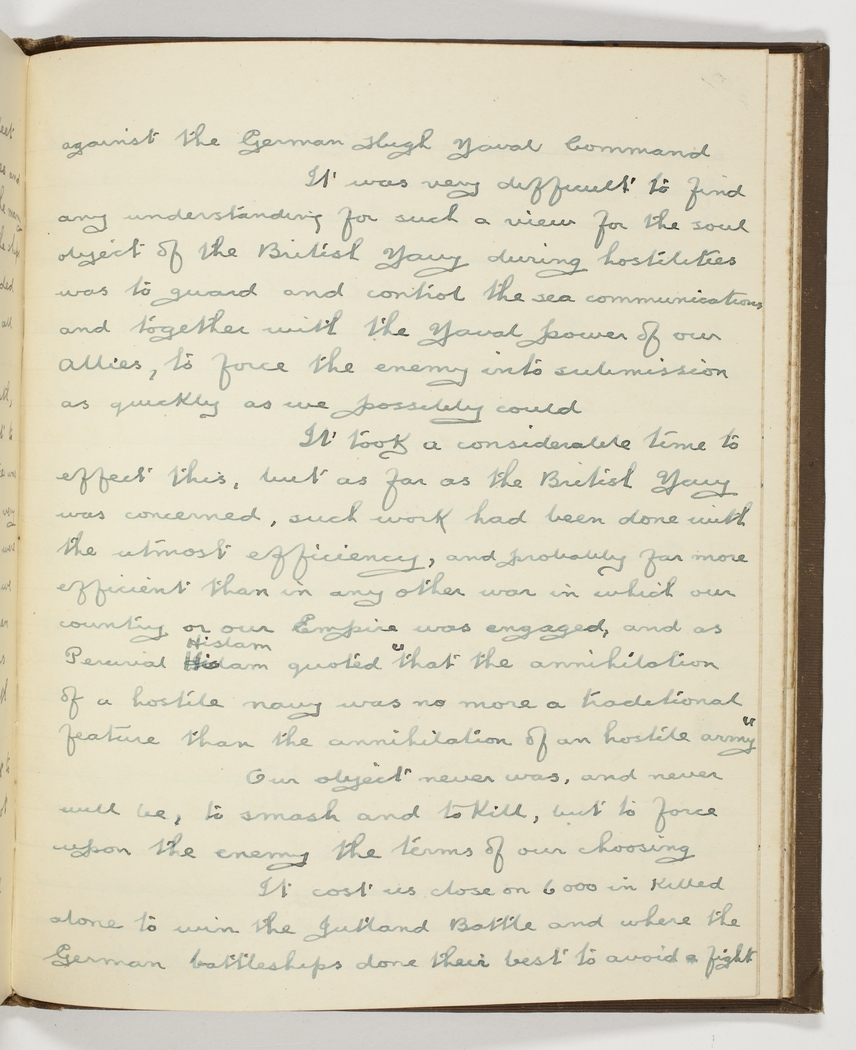 against the German High Naval Command
It was very difficult to find
any understanding for such a view for the soul
object of the British Navy during hostilities
was to guard and control the sea communications
and together with the Naval power of our
Allies, to force the enemy into submission
as quickly as we possibly could
It took a considerable time to
effect this, but as far as the British Navy
was concerned, such work had been done with
the utmost efficiency, and probably far more
efficient than in any other war in which our
country or our Empire was engaged, and as
Hislam
Percival Hislam quoted "that the annihilation
of a hostile navy was no more a traditional
feature than the annihilation of an hostile army"
Our object never was, and never
will be, to smash and to kill, but to force
upon the enemy the terms of our choosing
It cost us close on 6000 in killed
alone to win the Jutland Battle and where the
German battleships done their best to avoid a fight